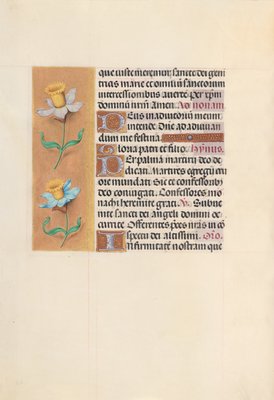 que iuste meremur: sancte dei geni
tricis marie et omniũ sanctorum
intercessionibus auerte. Per xp̃m
dominũ nr̃m Amen. Ad nonam
Deus in adiutoriũ meum
intende. Dñe ad adiuuan
dum me festina.
Gloria patri et filio. Hymnus.
Per palmã martirii deo de
dicati. Martires egregii cu
ore mundati. Sic et confessores
deo coniugati. Confessores mo
nachi heremite grati. V. Subue
nite sancti dei angeli domini oc
currite Offerentes p̃ces nr̃as in cõ
spectu dei altissimi. Oro.
Infirmitatẽ nostram que